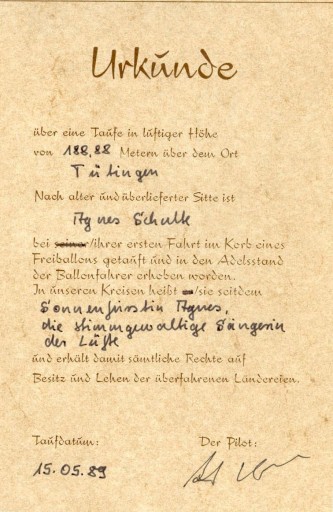 Urkunde
über eine Taufe in luftiger Höhe
von 188,88 Metern über dem Ort
Tutingen
Nach alter und überlieferter Sitte ist
Agnes Schulk
bei seiner/ihrer ersten Fahrt im Korb eines
Freiballons getauft und in den Adelsstand
der Ballonfahrer erhoben worden.
In unseren Kreisen heißt er/sie seitdem
Sonnenfürstin Agnes,
die stimmgewaltige Sängerin
der Lüfte
und erhält damit sämtliche Rechte auf
Besitz und Lehen der überfahrenen Ländereien.
Taufdatum: Der Pilot:
15.05.89